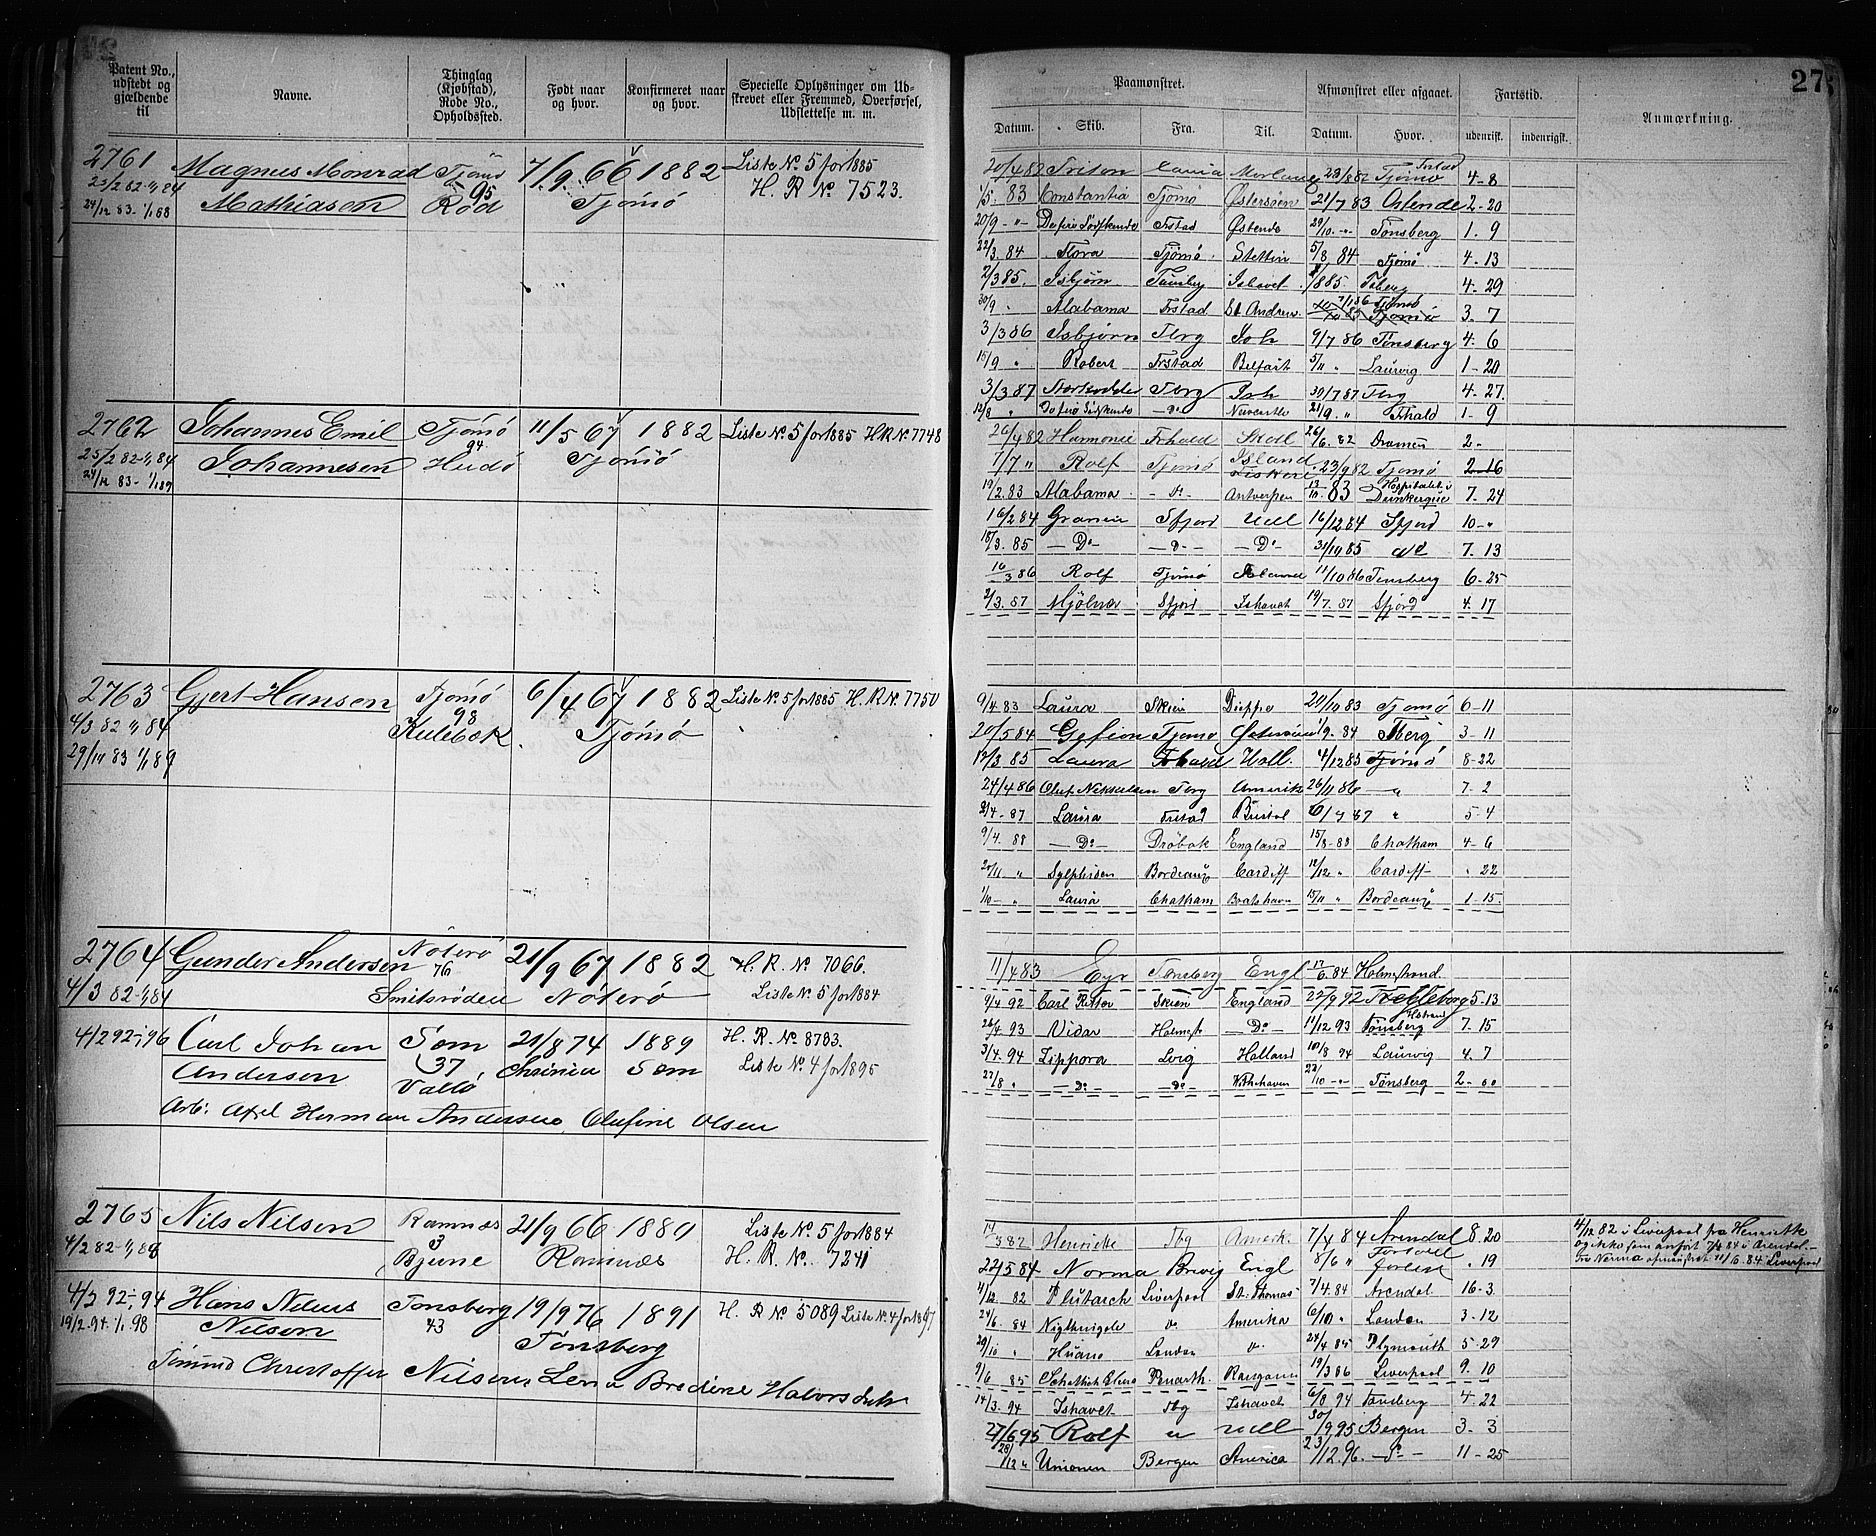 Patent No., udstedt og gjældende til
Navne.
Thinglag (Kjøbstad), Rode No., Opholdssted.
Født naar og hvor.
Konfirmeret naar og hvor.
Specielle Oplysninger om Udskrevet eller Fremmed, Overførsel, Udslettelse m. m.
2761 Magnus Monrad Tjömö 7/9 66 1882 Liste No. 5 for 1885
Mathiasen 95 Röd Tjömö H. R No. 7523.
24/12 83 - 1/1 88
2762 Johannes Emil Tjömö 11/5 67 1882 Liste No. 5 for 1885 H.R No. 7748
25/2 82 - 1/1 84 Johannesen 94 Hudö Tjömö
2763 Gjert Hansen Tjömö 6/4 67 1882 Liste No. 5 for 1885 H.R No. 7750
4/3 82 1/1 84 98 Kulebæk Tjömö
29/10 83 1/1 89
2764 Gunder Andersen Nöterö 21/9 67 1882 H. R. No. 7066.
4/3 82 - 1/1 84 76 Smitsröden Nöterö Liste No. 5 for 1884
4/2 92 - 96 Carl Johan Sem 21/8 74 1889 H. R. No. 8783.
Andersen 37 Vallö Sem Liste No. 4 for 1895
Arb: Axel Herman Andersen, Olufine Olsen
2765 Nils Nilsen Ramnæs 21/9 66 1880 Liste No. 5 for 1884
4/2 82 - Bjune Ramnæs H. R. No. 7241
4/2 92 - 94 Hans Nilius Tönsberg 19/9 76 1891 H. R No. 5089 Liste No. 4 for 1897
19/2 94 - 1/1 98 Nilsen 43 Tönsberg
Christoffer Nilsen Lena Halvorsdatter
27
Paamønstret.
Afmønstret eller afgaaet.
Fartstid.
Anmærkning.
Datum. Skib. Fra. Til. Datum. Hvor. udenrift. indenrigst.
20/4 82 Triton Tjömö 4-8
1/5 83 Constantia Tjömö Østersøen 21/7 83 Ostende 2-20
20/9 - " - De fire Södskende Frstad Østende 29/10 - " - Tønsberg 1. 9
22/3 84 Flora Tjömö Stettin 5/8 84 Tjömö 4. 13
2/3 85. Isbjörn Tønsberg Ishavet Tsberg 4-29
30/9 Alabama Frstad St Andrew Tjömö 3. 7
3/3 86 Isbjörn Tbrg Ish 9/7 86 Tønsberg 4. 6
15/9 " Robert Frstad Belfast 5/11 " Laurvig 1-20
3/3 87 Tbrg Ish 30/7 87 Tbrg 4-27
12/8 " De fire Södskende -Do- Newcastle 21/9 " Frhald 1-9
26/4 82 Harmonie Frhald Skotl 26/6. 82 Dramen 2-
7/7 " Rolf Tjömö Island 23/9 82 Tjömö
19/2. 83 Alabama -Do- Antverpen 13/10. 83 Hospitalet i Dunkerque 7. 24
16/2 84 Sfjord Udl 16/12 84 Sfjord 10-"
18/3. 85 -Do- -Do- -Do- 31/10 85 7. 13
16/3 86 Rolf Tjömö 11/10 86 Tønsberg 6-25
2/3. 87 Mjölner Sfjord Ishavet 19/7. 87 Sfjord 4. 17
9/4 83 Laura Skien Dieppe 20/10 83 Tjömö 6-11
20/5 84 Gefion Tjömö Østersøen 1/9. 84 Tbrg 3-11
12/3 85 Laura Frhald Holl. 4/12 85 Tjömö 8-22
24/4 86 Oluf Nickelsen Tbrg Amerika 26/11 86 -"- 7. 2
2/4. 87 Laura Frstad Bristol " 5. 4
9/4. 88 -Do- Dröbak England Chatham 4-6
20/11 " Sylphiden Bordeaux Cardiff 12/12 " Cardiff . 22
1/10 - " Laura Chatham 15/11 " Bordeaux 1. 15.
11/4 83 Eyr Tönsberg Engl 17/6. 84 Holmestrand
9/4 92 Carl Ritter Skien England 22/9 92 Trelleborg 5. 13
26/4 93 Vidar Holmest -Do- 11/12 93 Tønsberg 7. 15
3/4. 94 Zippora Lvig Holland 10/8 94 Laurvig 4. 7
27/8 " -Do- -Do- 23/10 - " - Tønsberg 2-00
14/3 82 Henriette Tbg Amerik. 7/4 84 Arendal 8. 20
22/5 84 Norma Brevig Engl 8/6 " . 19
11/12 82 Plutarch Liverpool St. Thomas 7/4. 84 Arendal 16. 3
24/6. 84 Nigthingale Do Amerika 6/10 " London 3-12
29/10 " London Do 24/4 85 Plymouth 5-29
9/6 85 Penarth. Rangoon 19/3 86 Liverpool 9. 10
14/3. 94 Ishavet Tbg Ishavet 6/8 94 Tønsberg 4. 22
27/6 95 Rolf " Udl 30/9 95 Bergen 3. 3
28/12 " Unionen Bergen America 23/12. 96. -Do- 11-25
4/12 82 i Liverpool fra Henriette
og ikke som anfört 7/4 84 i Arendal. -
Fra Norma afmönstret 11/6. 84 Liverpool